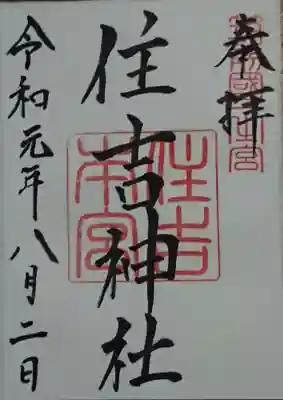 奉拝
住吉神社
住吉
本宮
令和元年八月二日